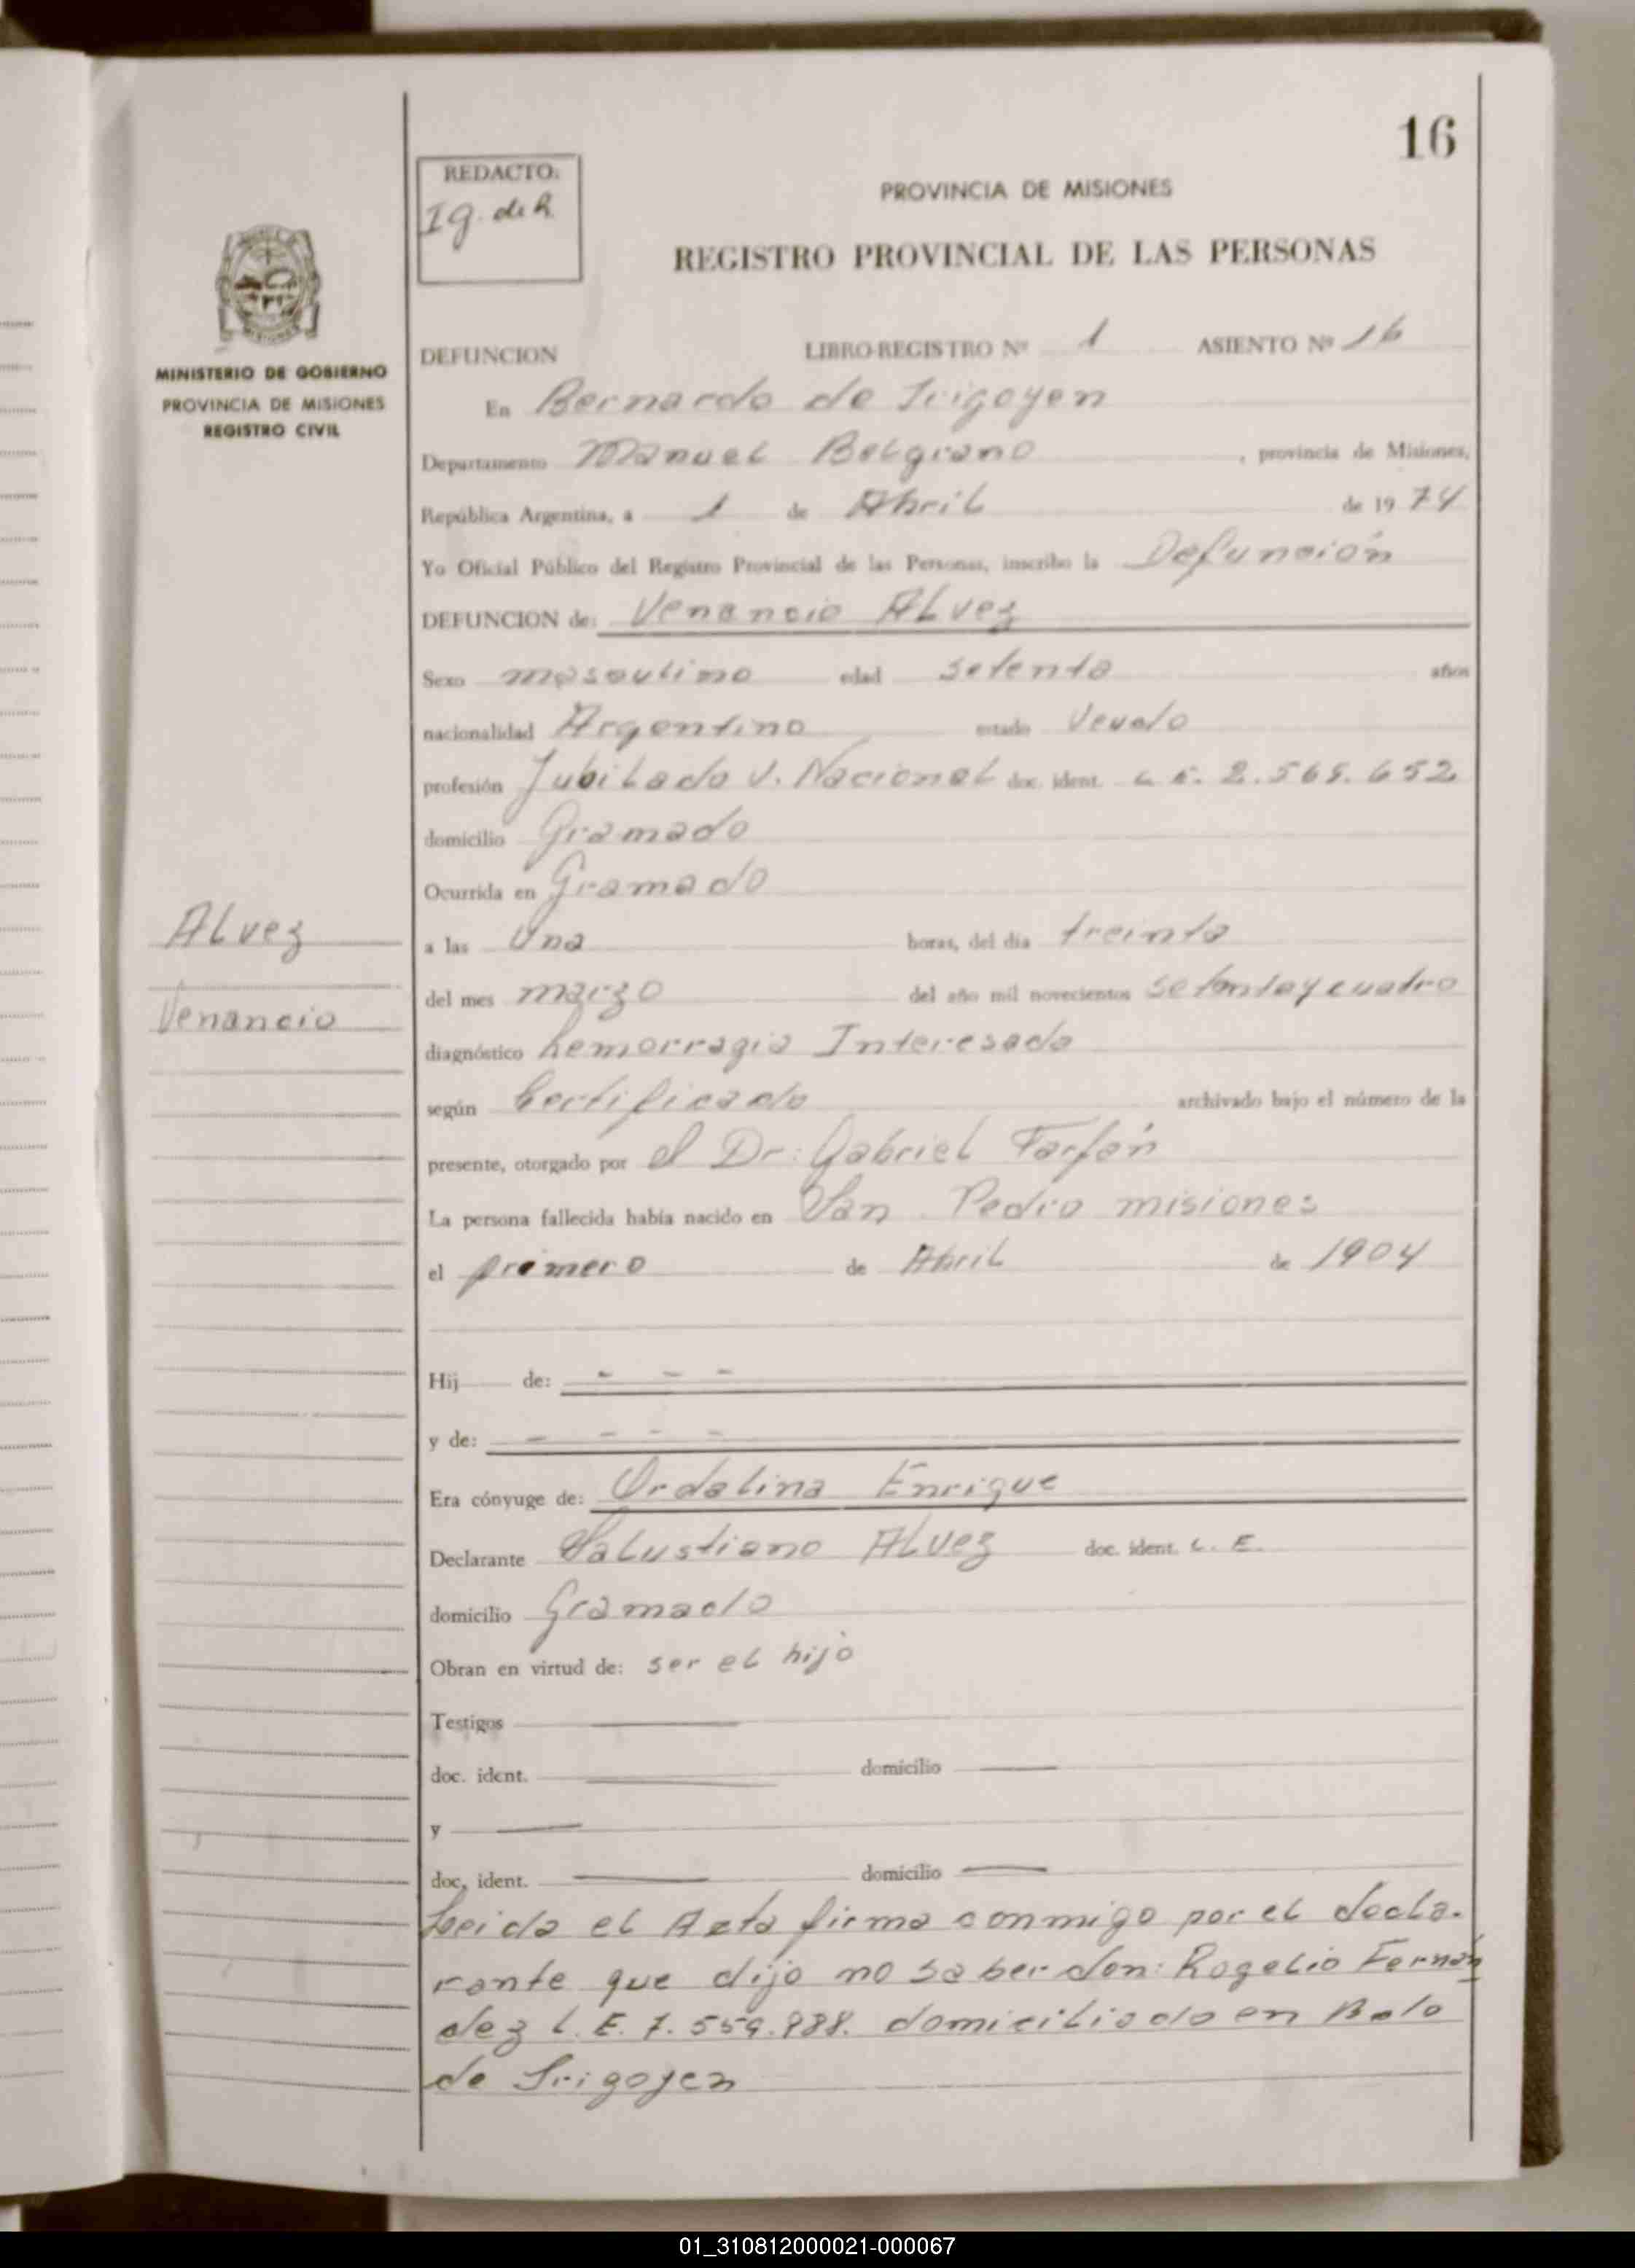 16
REDACTO:
Ig. de R.
PROVINCIA DE MISIONES
REGISTRO PROVINCIAL DE LAS PERSONAS
MINISTERIO DE GOBIERNO
PROVINCIA DE MISIONES
REGISTRO CIVIL
DEFUNCION LIBRO-REGISTRO Nº 1 ASIENTO Nº 16
En Bernardo de Irigoyen
Departamento Manuel Belgrano, provincia de Misiones,
República Argentina, a 1 de Abril de 1974
Yo Oficial Público del Registro Provincial de las Personas, inscribo la Defunción
DEFUNCION de: Venancio Alvez
Sexo masculino edad setenta años
nacionalidad Argentino estado Veudo
profesión Jubilado V. Nacional doc. ident. L E. 2.565.652
domicilio Gramado
Ocurrida en Gramado
Alvez
a las Una horas, del día treinta
del mes marzo del año mil novecientos setenta y cuatro
Venancio
diagnóstico hemorragia Interesada
según Certificado archivado bajo el número de la
presente, otorgado por el Dr: Gabriel Farfán
La persona fallecida había nacido en San Pedro misiones
el primero de Abril de 1904
Hij de: - - -
y de: - - - -
Era cónyuge de: Ordalina Enrique
Declarante Salustiano Alvez doc. ident. L. E.
domicilio Gramado
Obran en virtud de: ser el hijo
Testigos
doc. ident. domicilio
y
doc. ident. domicilio
Leida el Acta firma conmigo por el decla-
rante que dijo no saber don: Rogelio Fernán
dez L. E. 7. 559.988. domiciliado en Bdo
de Irigoyen
01_310812000021-000067